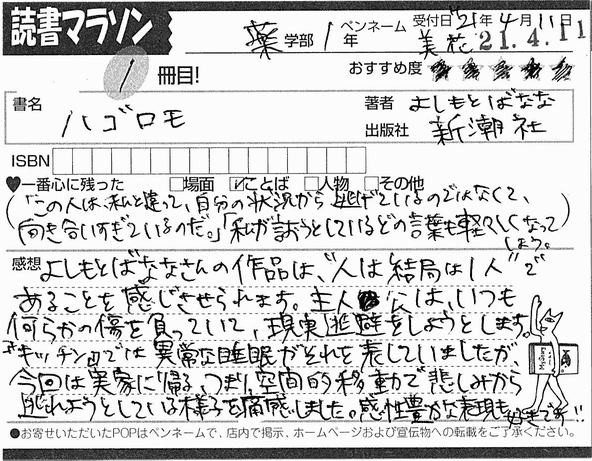 読書マラソン
薬 学部 1 年 ペンネーム 美花 受付日 '21年4月11日
21.4.11
1 冊目! おすすめ度 ★★★★★
書名 ハゴロモ 著者 よしもとばなな
出版社 新潮社
ISBN
♥一番心に残った □場面 ☑ことば □人物 □その他
(「この人は、私と違って、自分の状況から逃げているのではなくて、
向き合いすぎているのだ。」「私が言おうとしているどの言葉も軽々しくなって
しまう。)
感想 よしもとばななさんの作品は、"人は結局は1人"で
あることを感じさせられます。主人公は、いつも
何らかの傷を負っていて、現実逃避をしようとします。
"キッチン"では異常な睡眠がそれを表していましたが、
今回は実家に帰る、つまり、空間的移動で悲しみから
逃れようとしている様子を痛感しました。感性豊かな表現も好きです!!
●お寄せいただいたPOPはペンネームで、店内で掲示、ホームページおよび宣伝物への転載をご了承ください。